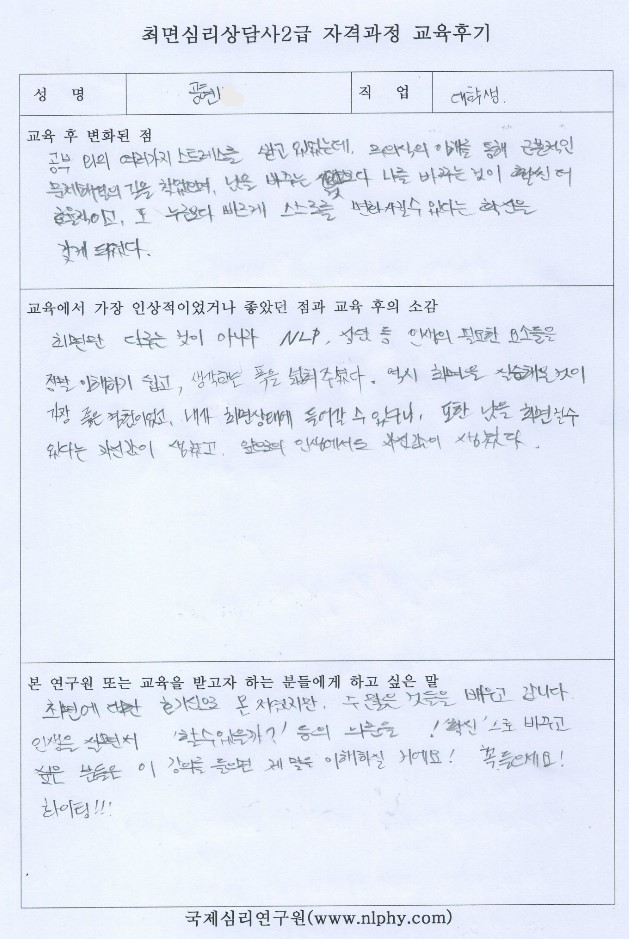 최면심리상담사2급 자격과정 교육후기
성 명 직 업 대학생.
교육 후 변화된 점
공부 외의 여러가지 스트레스를 받고 있었는데, 무의식의 이해를 통해 근본적인
문제해결의 길을 찾았으며, 남을 바꾸는 것보다 나를 바꾸는 것이 훨씬 더
효율적이고, 또 누구보다 빠르게 스스로를 변화시킬수 있다는 확신을
갖게 되었다.
교육에서 가장 인상적이었거나 좋았던 점과 교육 후의 소감
최면만 다루는 것이 아니라 NLP, 상담 등 인생의 필요한 요소들을
정말 이해하기 쉽고, 생각하는 폭을 넓혀주셨다. 역시 최면을 실습해본것이
가장 좋은 경험이었고, 내가 최면상태에 들어갈 수 있구나, 또한 남을 최면할수
있다는 자신감이 생겼고, 앞으로의 인생에서도 자신감이 생겼다.
본 연구원 또는 교육을 받고자 하는 분들에게 하고 싶은 말
최면에 대한 호기심으로 온 것들을 배우고 갑니다.
인생을 살면서 '할수있을까?' 등의 !확신'으로 바꾸고
싶은 분들은 이 강의를 들으면 제 말을 이해하실 거에요! 꼭 들으세요!
화이팅!!!
국제심리연구원(www.nlphy.com)